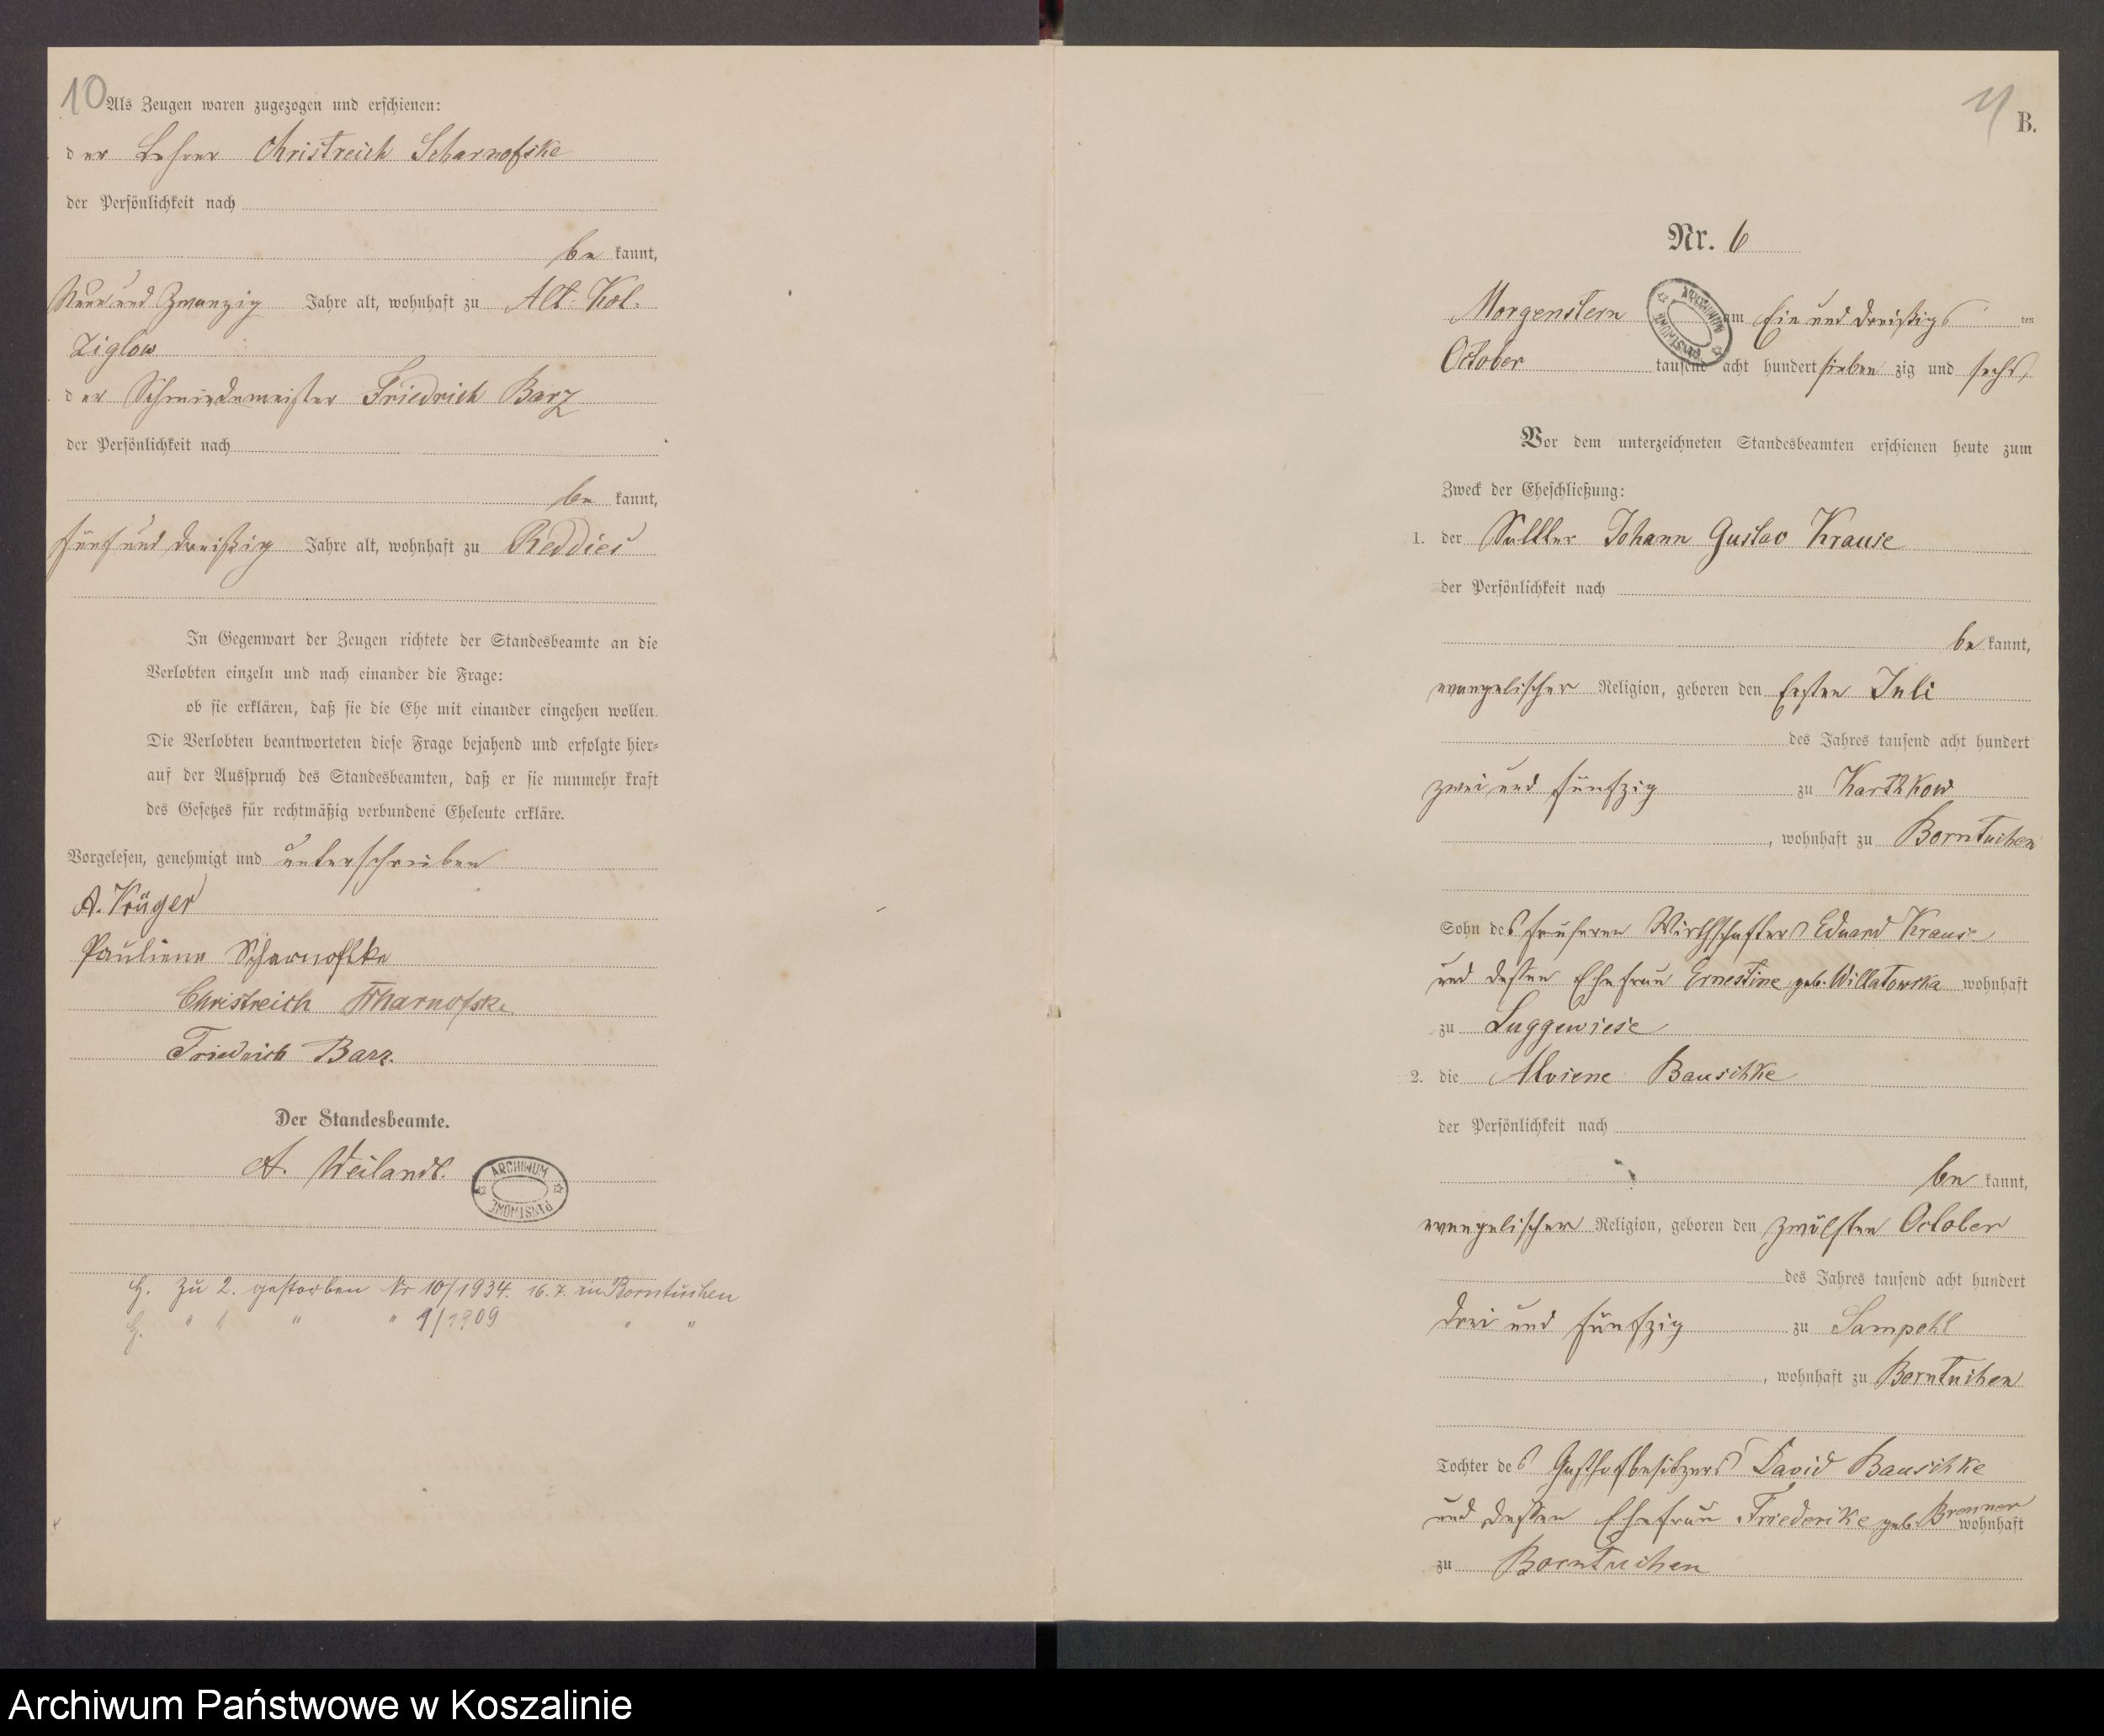 10
Als Zeugen waren zugezogen und erschienen:
der Lehrer Christreich Scharnofske
der Persönlichkeit nach
be kannt,
Neun und Zwanzig Jahre alt, wohnhaft zu Alt Kol.
Ziglow
der Schmiedemeister Friedrich Barz
der Persönlichkeit nach
be kannt,
fünf und dreißig Jahre alt, wohnhaft zu Reddies
In Gegenwart der Zeugen richtete der Standesbeamte an die
Verlobten einzeln und nach einander die Frage:
ob sie erklären, daß sie die Ehe mit einander eingehen wollen.
Die Verlobten beantworteten diese Frage bejahend und erfolgte hier-
auf der Ausspruch des Standesbeamten, daß er sie nunmehr kraft
des Gesetzes für rechtmäßig verbundene Eheleute erkläre.
Vorgelesen, genehmigt und unterschrieben
A. Krüger
Pauliene Scharnofske
Christreich Scharnofske
Friedrich Barz.
Der Standesbeamte.
A. Weilandt.
ARCHIWUM PAŃSTWOWE
H. Zu 2. gestorben Nr 10/1934. 16.7. in Borntuchen
G. " " " " 1/1909 " "
11
B.
Nr. 6
Morgenstern am Ein und dreißigs ten
October tausend acht hundert sieben zig und sechs,
ARCHIWUM PAŃSTWOWE
Vor dem unterzeichneten Standesbeamten erschienen heute zum
Zweck der Eheschließung:
1. der Sattler Johann Gustav Krause
der Persönlichkeit nach
be kannt,
evangelischer Religion, geboren den Ersten Juli
des Jahres tausend acht hundert
zwei und fünfzig zu Karthkow
, wohnhaft zu Borntuchen
Sohn des früheren Wirthschafters Eduard Krause
und dessen Ehefrau Ernestine geb. Willatowska wohnhaft
zu Luggewiese
2. die Alviene Bauschke
der Persönlichkeit nach
be kannt,
evangelischer Religion, geboren den zwölften October
des Jahres tausend acht hundert
drei und fünfzig zu Sampohl
, wohnhaft zu Borntuchen
Tochter des Gasthofbesitzers David Bauschke
und dessen Ehefrau Friederike geb. Brenner wohnhaft
zu Borntuchen
Archiwum Państwowe w Koszalinie